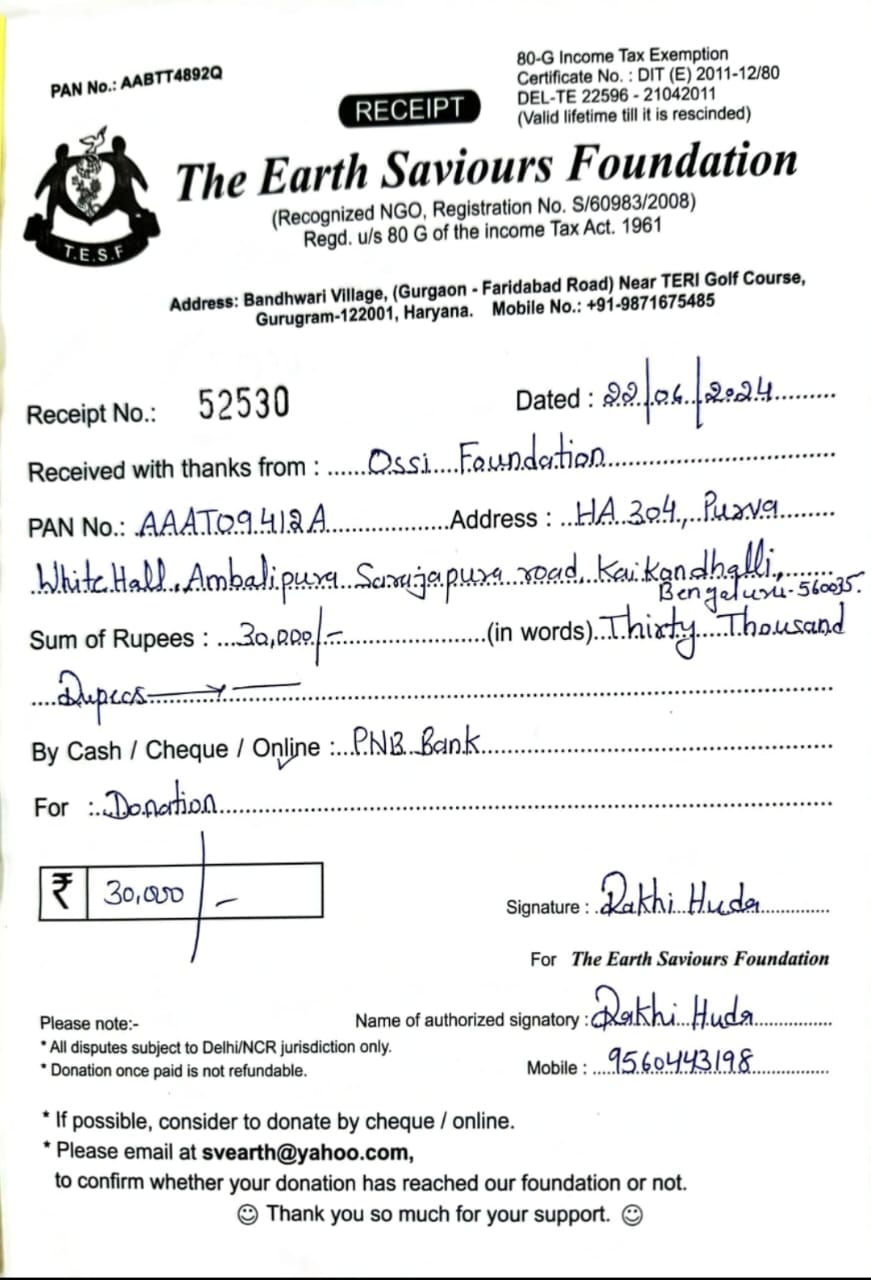 PAN No.: AABTT4892Q
80-G Income Tax Exemption
Certificate No. : DIT (E) 2011-12/80
DEL-TE 22596 - 21042011
(Valid lifetime till it is rescinded)
RECEIPT
The Earth Saviours Foundation
(Recognized NGO, Registration No. S/60983/2008)
Regd. u/s 80 G of the income Tax Act. 1961
T.E.S.F
Address: Bandhwari Village, (Gurgaon - Faridabad Road) Near TERI Golf Course,
Gurugram-122001, Haryana. Mobile No.: +91-9871675485
Receipt No.: 52530 Dated : 22/06/2024
Received with thanks from : Ossi Foundation
PAN No.: AAATO9412A Address : HA 304, Purva
White Hall, Ambalipura Sarajapura road, Kaikondhalli,
Bengaluru-560035.
Sum of Rupees : 30,000/- (in words) Thirty Thousand
Rupees
By Cash / Cheque / Online : PNB Bank
For : Donation
₹ 30,000/-
Signature : Rakhi Huda
For The Earth Saviours Foundation
Name of authorized signatory : Rakhi Huda
Please note:-
* All disputes subject to Delhi/NCR jurisdiction only.
* Donation once paid is not refundable.
Mobile : 9560443198
* If possible, consider to donate by cheque / online.
* Please email at svearth@yahoo.com,
to confirm whether your donation has reached our foundation or not.
☺ Thank you so much for your support. ☺